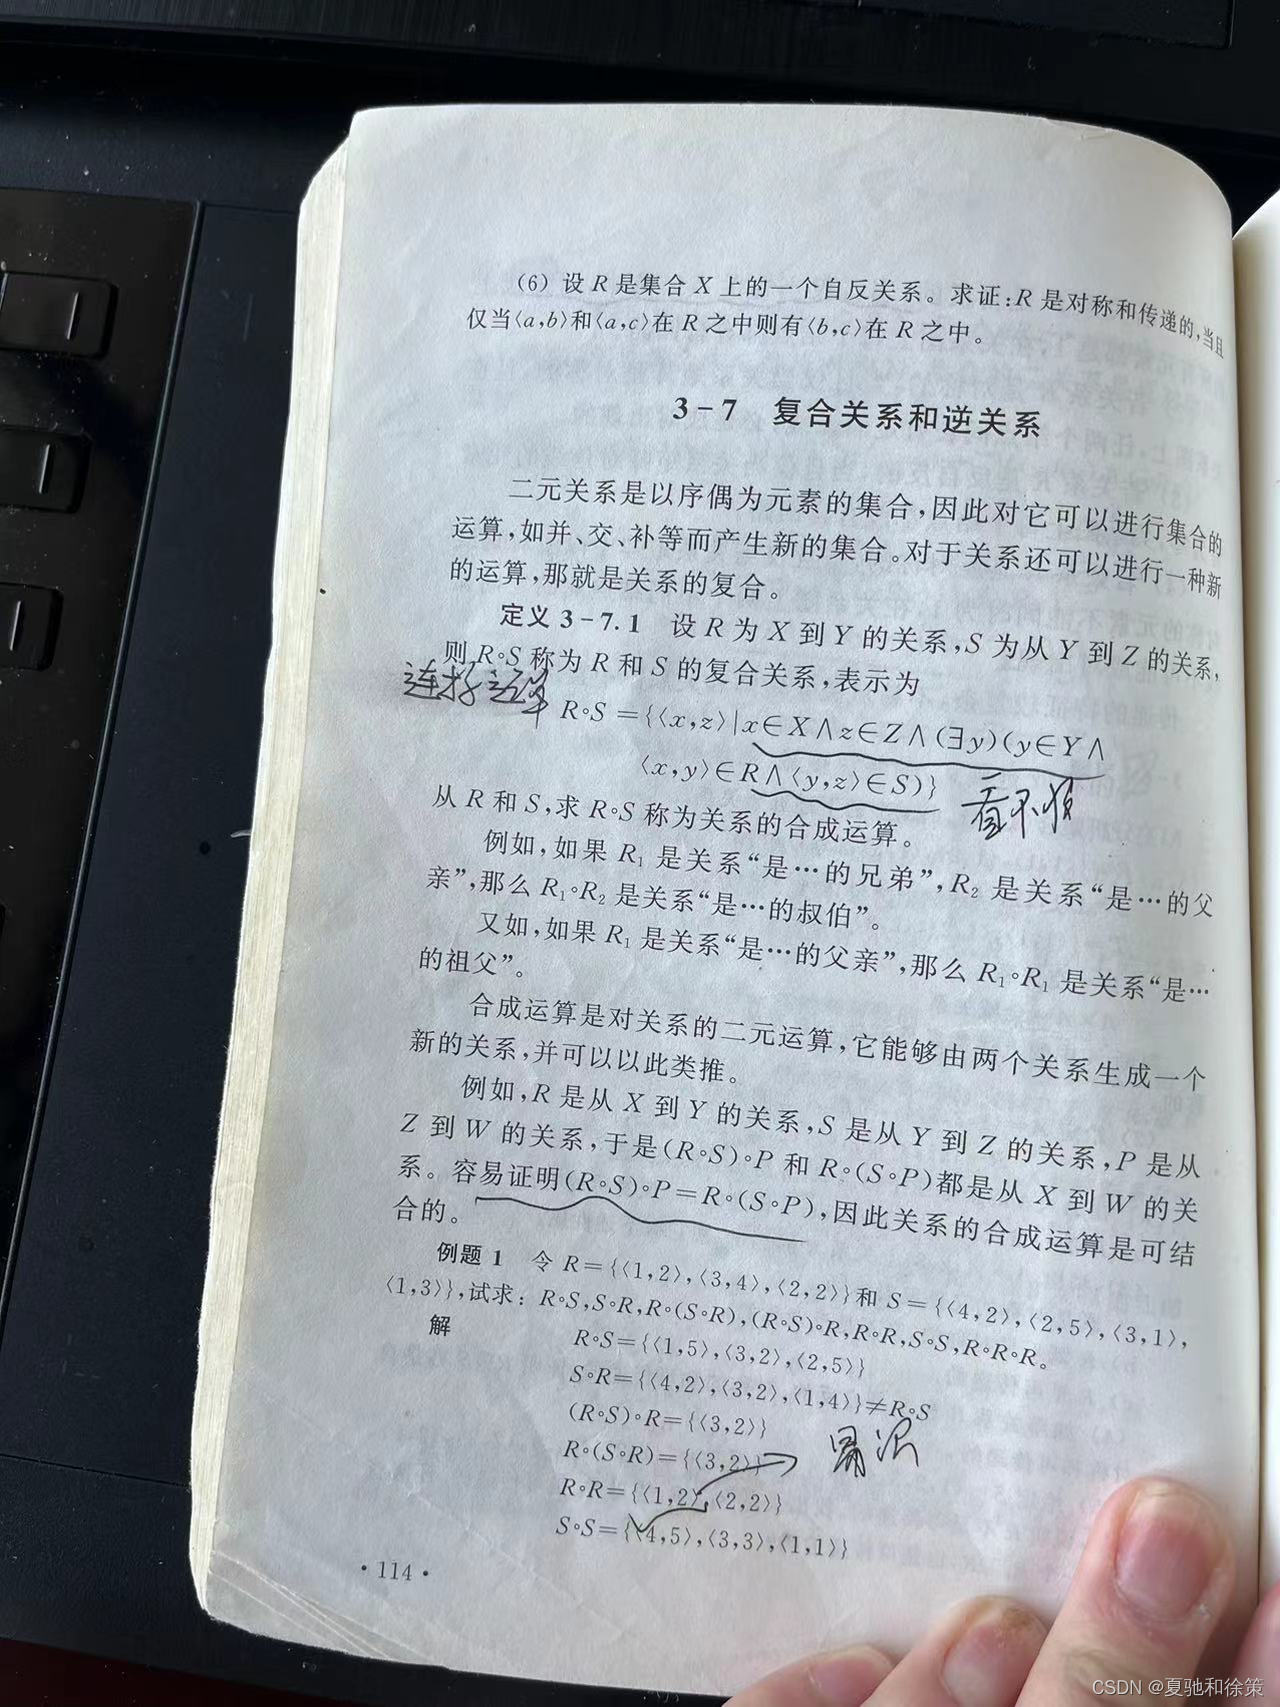 (6) 设 R 是集合 X 上的一个自反关系。求证:R 是对称和传递的,当且
仅当⟨a,b⟩和⟨a,c⟩在 R 之中则有⟨b,c⟩在 R 之中。
3-7 复合关系和逆关系
二元关系是以序偶为元素的集合,因此对它可以进行集合的
运算,如并、交、补等而产生新的集合。对于关系还可以进行一种新
的运算,那就是关系的复合。
定义 3-7.1 设 R 为 X 到 Y 的关系,S 为从 Y 到 Z 的关系,
则 R∘S 称为 R 和 S 的复合关系,表示为
连接运算
R∘S={⟨x,z⟩|x∈X∧z∈Z∧(∃y)(y∈Y∧
⟨x,y⟩∈R∧⟨y,z⟩∈S)}
看不顺
从 R 和 S,求 R∘S 称为关系的合成运算。
例如,如果 R₁ 是关系“是…的兄弟”,R₂ 是关系“是…的父
亲”,那么 R₁∘R₂ 是关系“是…的叔伯”。
又如,如果 R₁ 是关系“是…的父亲”,那么 R₁∘R₁ 是关系“是…
的祖父”。
合成运算是对关系的二元运算,它能够由两个关系生成一个
新的关系,并可以以此类推。
例如,R 是从 X 到 Y 的关系,S 是从 Y 到 Z 的关系,P 是从
Z 到 W 的关系,于是(R∘S)∘P 和 R∘(S∘P)都是从 X 到 W 的关
系。容易证明(R∘S)∘P=R∘(S∘P),因此关系的合成运算是可结
合的。
例题 1 令 R={⟨1,2⟩,⟨3,4⟩,⟨2,2⟩}和 S={⟨4,2⟩,⟨2,5⟩,⟨3,1⟩,
⟨1,3⟩},试求: R∘S,S∘R,R∘(S∘R),(R∘S)∘R,R∘R,S∘S,R∘R∘R。
解 R∘S={⟨1,5⟩,⟨3,2⟩,⟨2,5⟩}
S∘R={⟨4,2⟩,⟨3,2⟩,⟨1,4⟩}≠R∘S
(R∘S)∘R={⟨3,2⟩}
R∘(S∘R)={⟨3,2⟩}
R∘R={⟨1,2⟩,⟨2,2⟩}
S∘S={⟨4,5⟩,⟨3,3⟩,⟨1,1⟩}
·114·
CSDN @夏驰和徐策